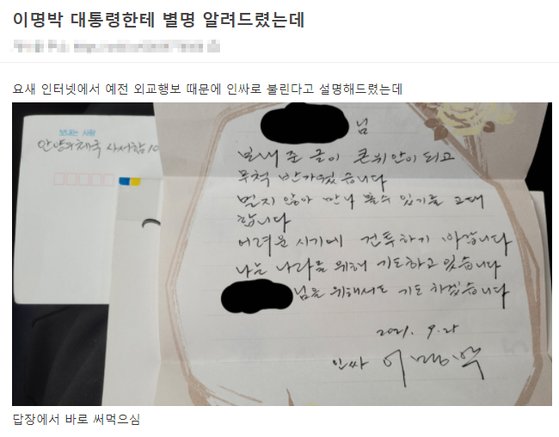 이명박 대통령한테 별명 알려드렸는데
요새 인터넷에서 예전 외교행보 때문에 인싸로 불린다고 설명해드렸는데
보내는 사람
안양우체국 사서함 10
님
보내 준 글이 큰 위안이 되고
무척 반가웠습니다
멀지 않아 만나 볼 수 있기를 고대
합니다
어려운 시기에 건투하기 바랍니다
나는 나라를 위해 기도하고 있습니다
님을 위해서도 기도 하겠습니다
2021. 9. 25
인싸 이명박
답장에서 바로 써먹으심